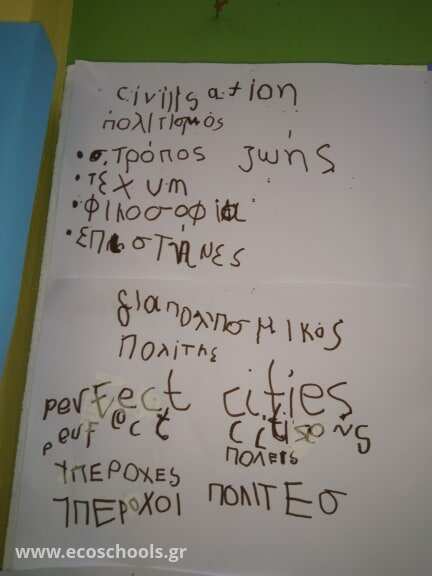 civilisation
πολιτισμός
• ο τρόπος ζωής
• τέχνη
• φιλοσοφία
• επιστήμες
διαπολιτισμικός
πολίτης
perfect cities
perfect citizens
πόλεις
ΥΠΕΡΟΧΕΣ
ΥΠΕΡΟΧΟΙ ΠΟΛΙΤΕσ
www.ecoschools.gr